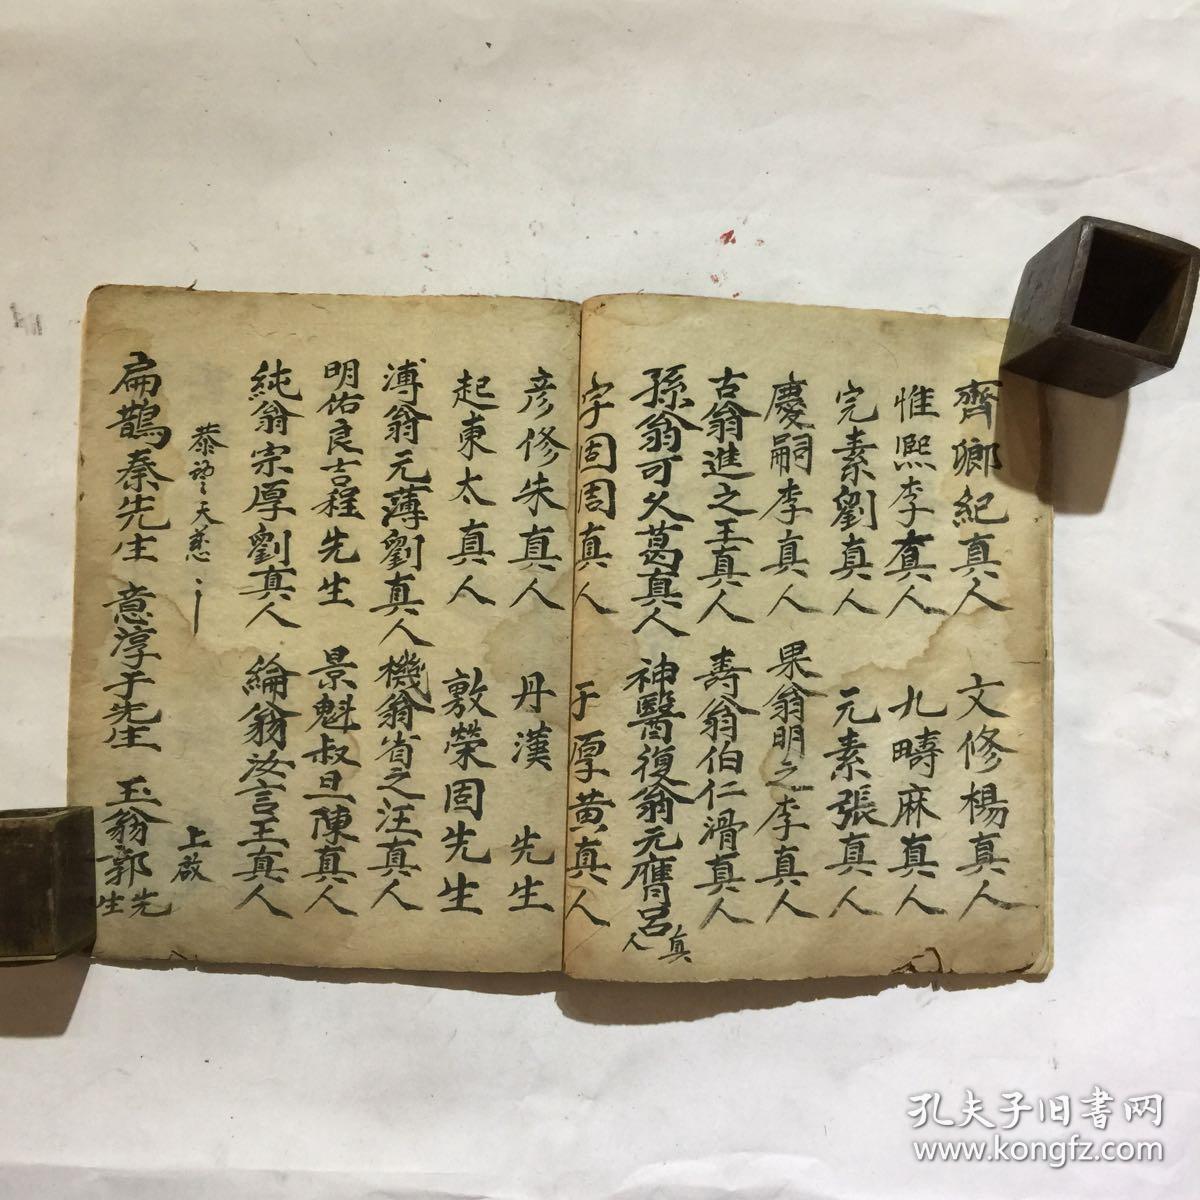 齊卿紀真人 文修楊真人
惟熙李真人 九疇麻真人
完素劉真人 元素張真人
慶嗣李真人 果翁明之李真人
古翁進之王真人 壽翁伯仁滑真人
孫翁可久葛真人 神醫復翁元膺呂真人
字固周真人 于厚黃真人
彦修朱真人 丹漢 先生
起東太真人 敷榮固先生
溥翁元薄劉真人 機翁省之汪真人
明佑良吉程先生 景魁叔旦陳真人
純翁宗厚劉真人 綸翁汝言王真人
恭望天慈 上啟
扁鵲秦先生 意淳于先生 玉翁郭先生
孔夫子旧书网
www.kongfz.com